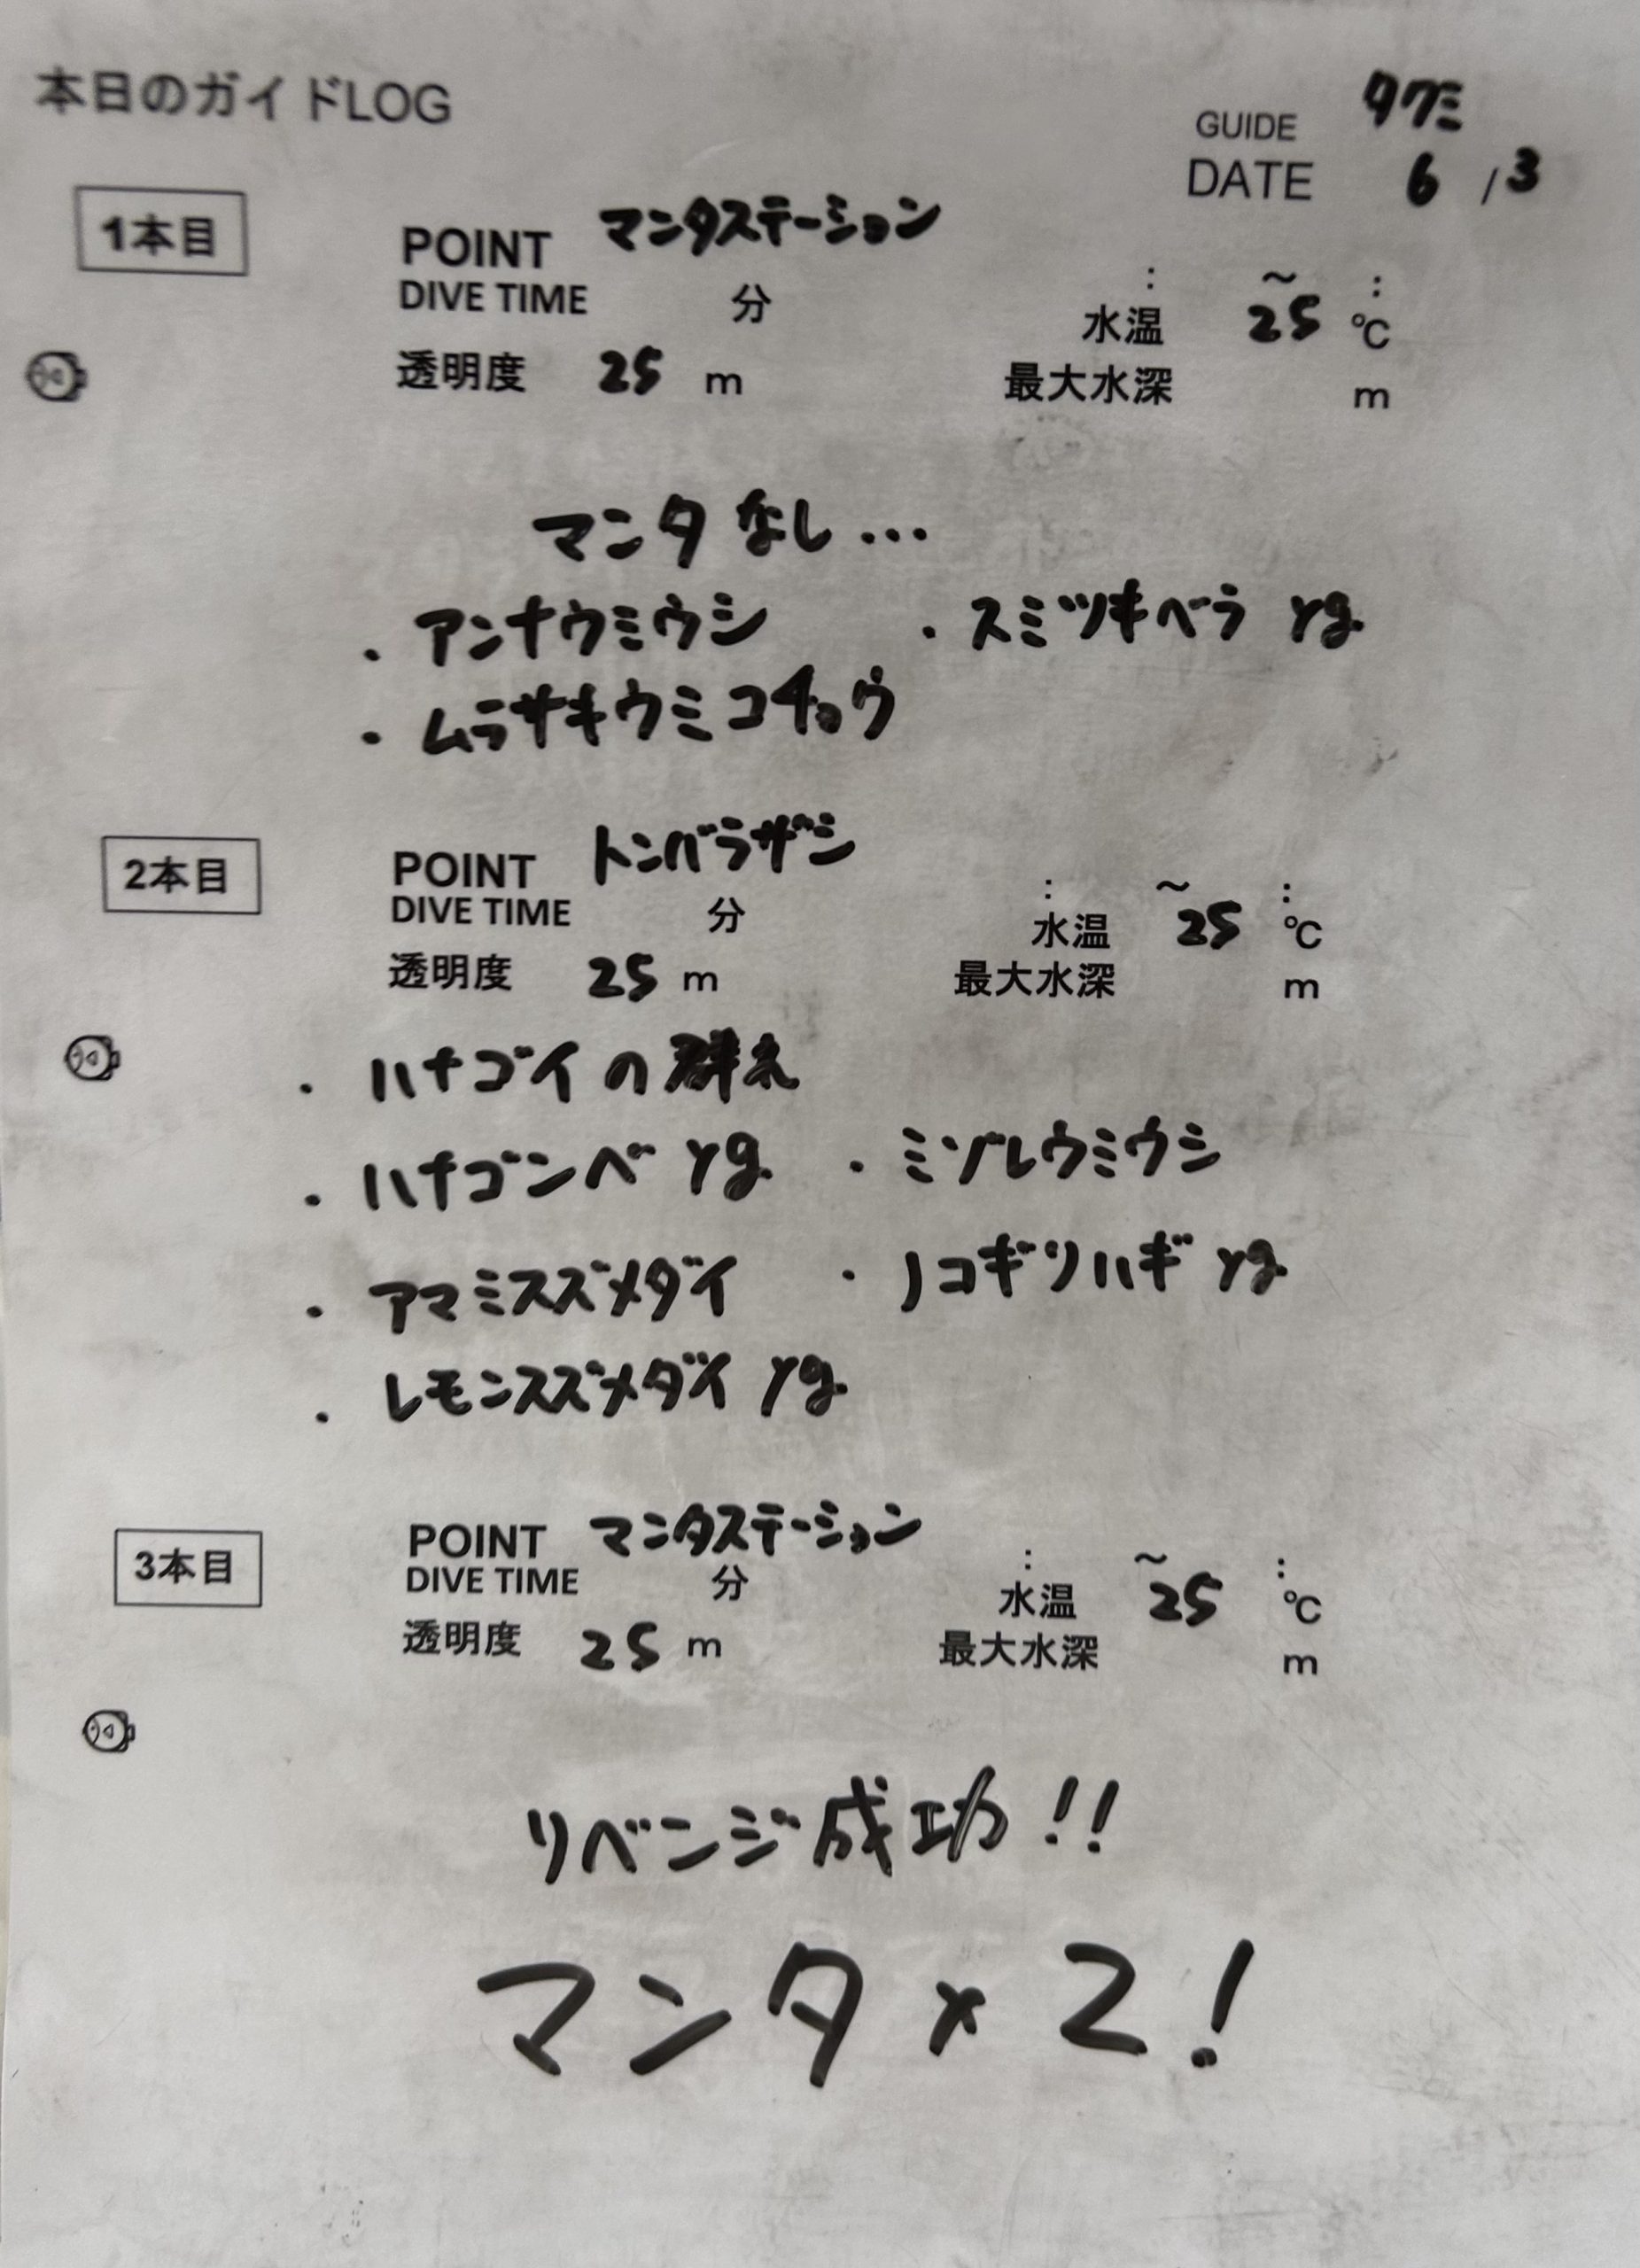 本日のガイドLOG
GUIDE タクミ
DATE 6 / 3
1本目
POINT マンタステーション
DIVE TIME 分 : ～ :
水温 25 ℃
透明度 25 m
最大水深 m
マンタ なし...
・アンナウミウシ ・スミツキベラ yg.
・ムラサキウミコチョウ
2本目
POINT トンバラザシ
DIVE TIME 分 : ～ :
水温 25 ℃
透明度 25 m
最大水深 m
・ハナゴイの群れ
・ハナゴンベ yg. ・ミゾレウミウシ
・アマミスズメダイ ・ノコギリハギ yg.
・レモンスズメダイ yg.
3本目
POINT マンタステーション
DIVE TIME 分 : ～ :
水温 25 ℃
透明度 25 m
最大水深 m
リベンジ成功!!
マンタ×2!